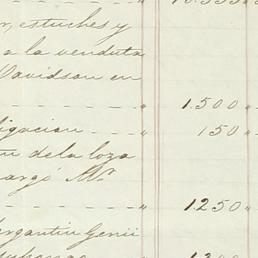 estuches y
a la venduta
Davidson en
" 1.500 "
ligacion " 150 "
de la loza
cargó Mr
" 1250 "
ergantin Genii